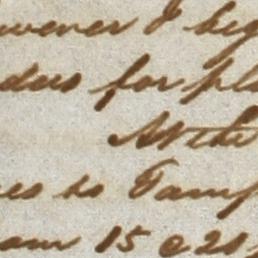 wever I beg
ders for pla
At the
es to Tamp
am 15 @ 20